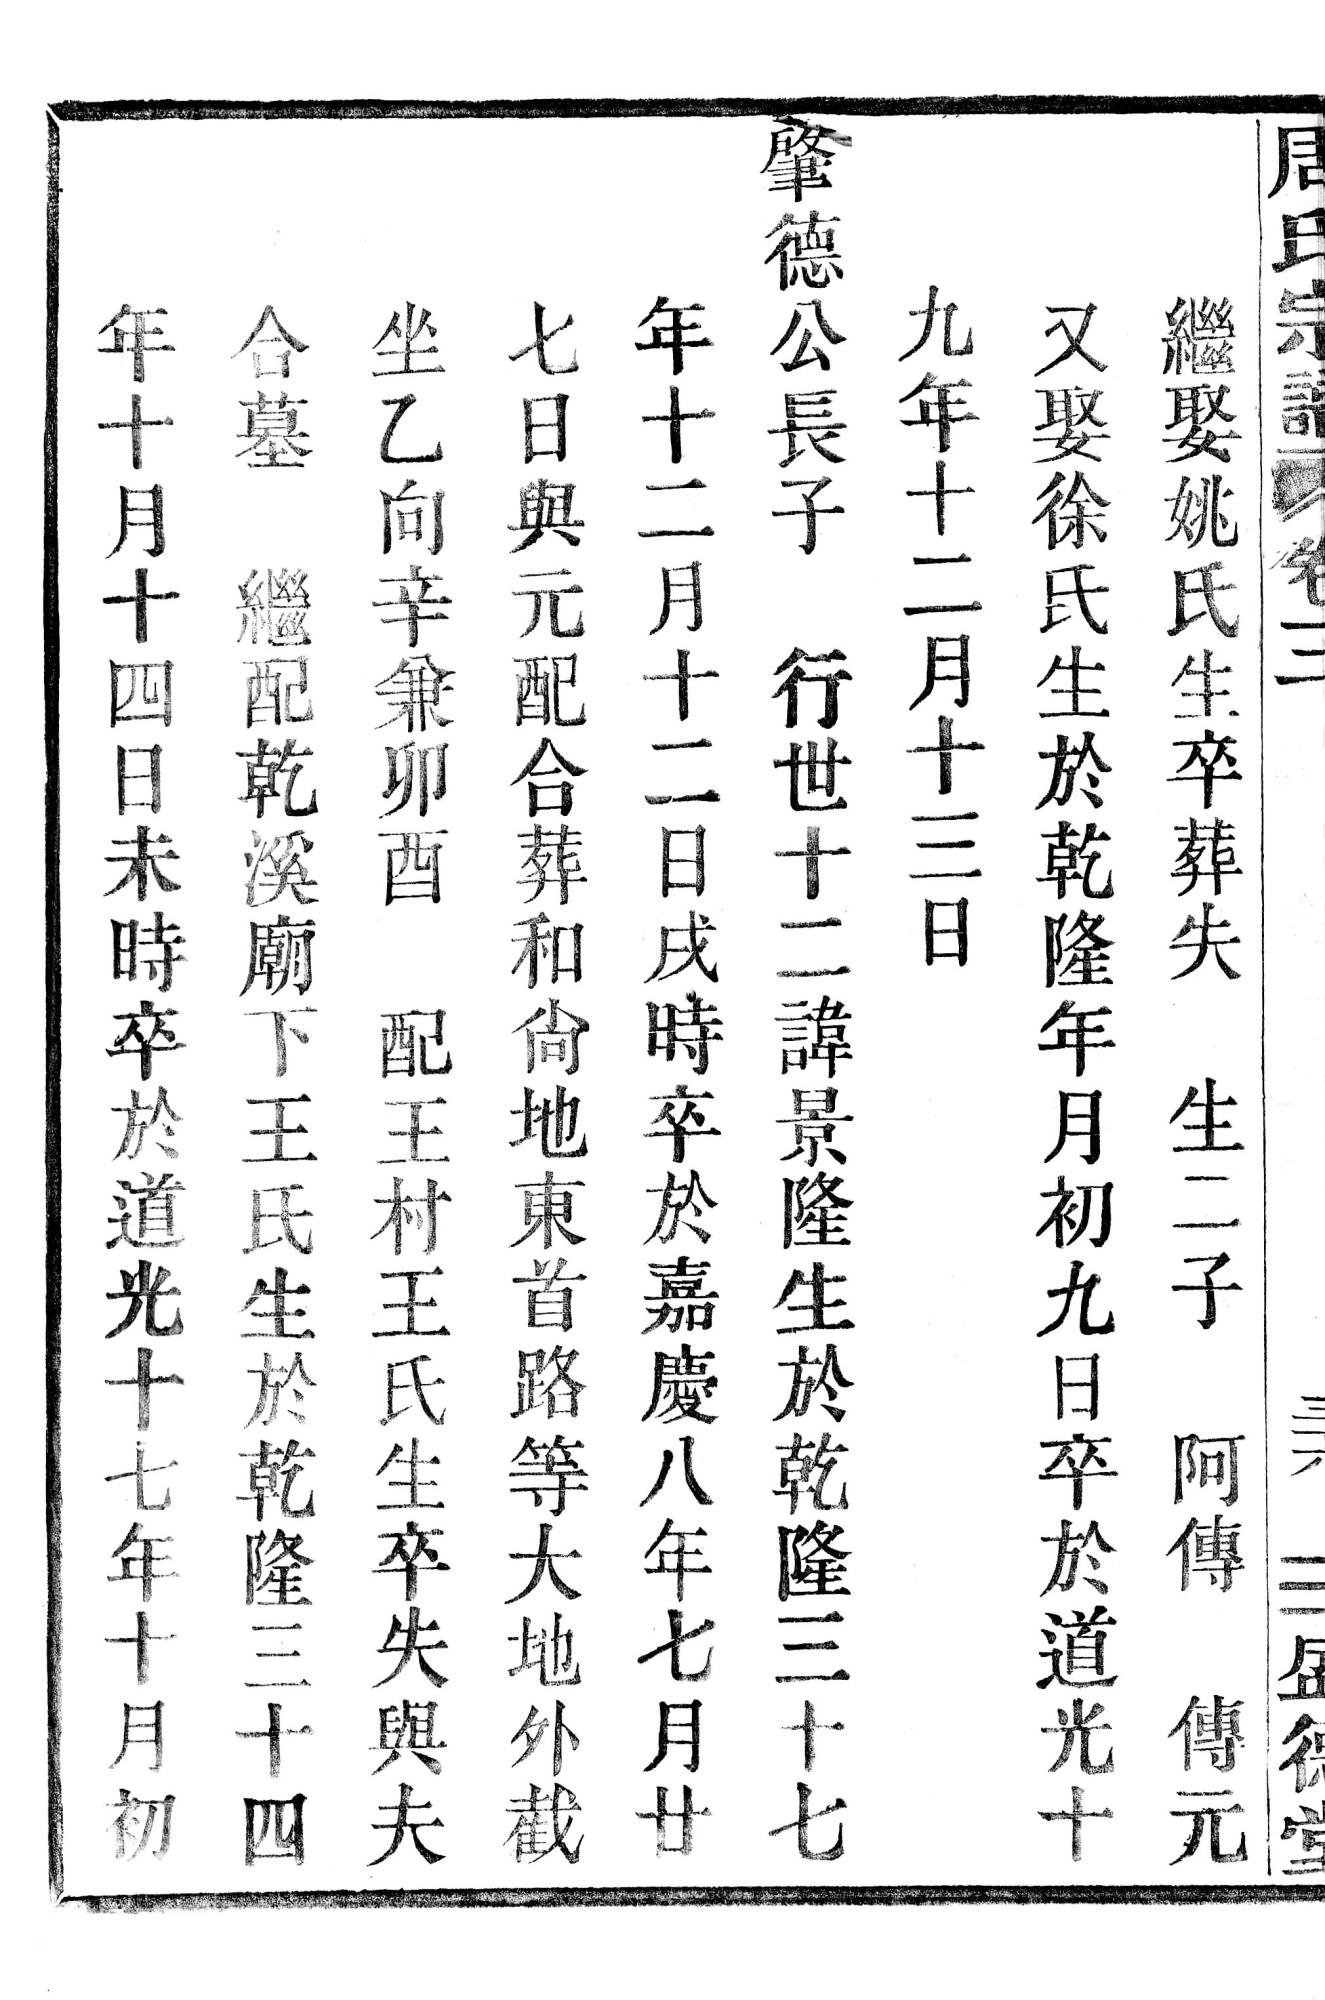 周氏宗譜 卷二 三六 盛德堂
繼娶姚氏生卒葬失 生二子 阿傳 傳元
又娶徐氏生於乾隆年月初九日卒於道光十
九年十二月十三日
肇德公長子 行世十二諱景隆生於乾隆三十七
年十二月十二日戌時卒於嘉慶八年七月廿
七日與元配合葬和尙地東首路等大地外截
坐乙向辛兼卯酉 配王村王氏生卒失與夫
合墓 繼配乾溪廟下王氏生於乾隆三十四
年十月十四日未時卒於道光十七年十月初